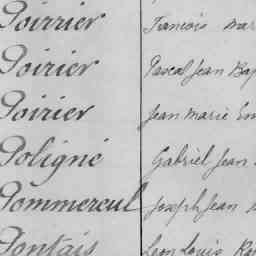 Poirrier François Mar
Poirier Pascal Jean Bap
Poirier Jean Marie Em
Poligné Gabriel Jean
Pommereul Joseph Jean
Pontais Léon Louis